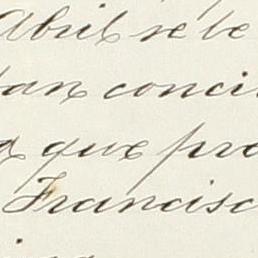 Abril se le
tan conci
a que pre
Francisc